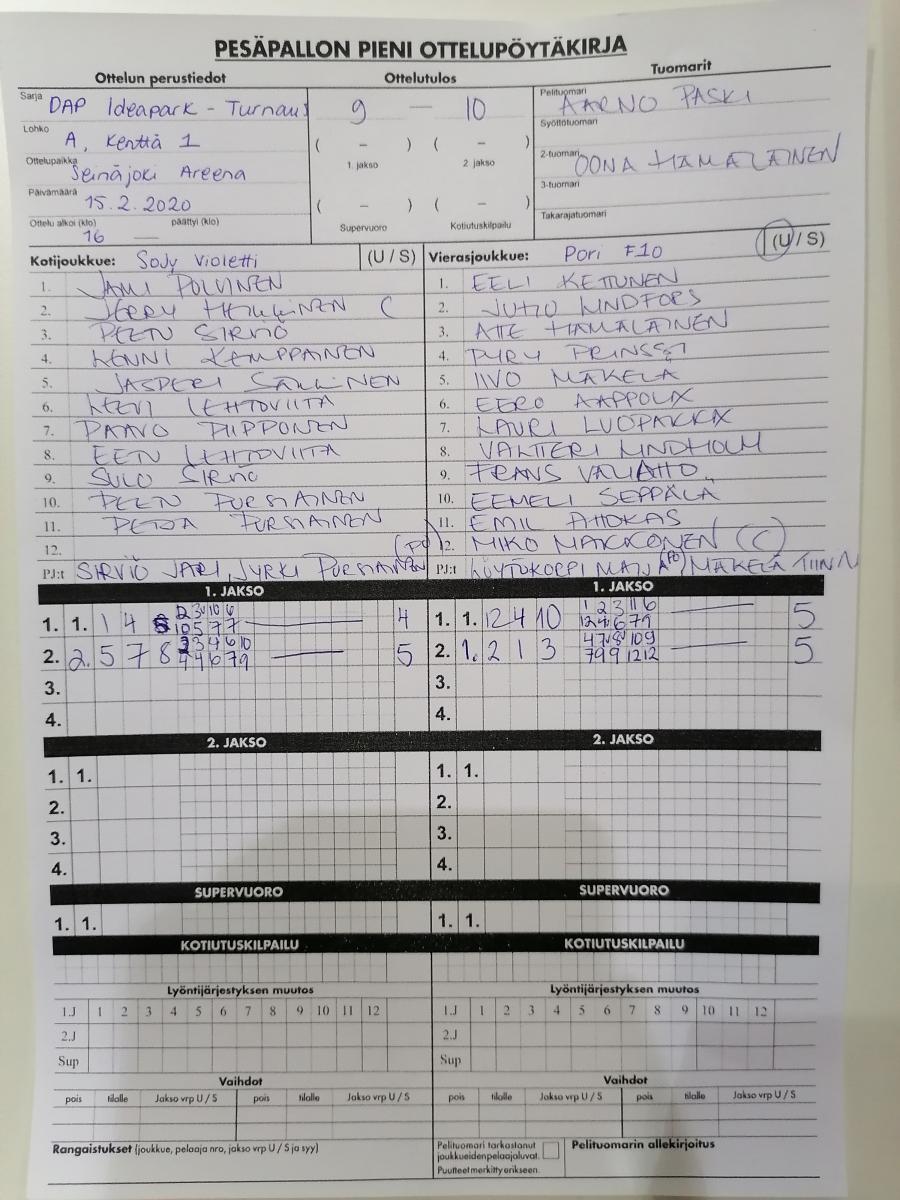 PESÄPALLON PIENI OTTELUPÖYTÄKIRJA
Ottelun perustiedot
Ottelutulos
Tuomarit
Sarja DAP Ideapark - Turnaus
9 — 10
Pelituomari AARNO PASKI
Lohko A, Kenttä 1
Syöttötuomari
( – ) ( – )
1. jakso 2. jakso
Ottelupaikka Seinäjoki Areena
2-tuomari OONA HÄMÄLÄINEN
3-tuomari
Päivämäärä 15.2.2020
( – ) ( – )
Supervuoro Kotiutuskilpailu
Takarajatuomari
Ottelu alkoi (klo) 16 päättyi (klo) —
Kotijoukkue: SoJy Violetti (U / S)
Vierasjoukkue: Pori F10 (U / S)
1. JAMI POLVINEN
2. JEERY HEIKKINEN C
3. PEETU SIRVIÖ
4. LENNI KEMPPAINEN
5. JASPERI SAKKINEN
6. LEEVI LEHTOVIITA
7. PAAVO PIIPPONEN
8. EETU LEHTOVIITA
9. SULO SIRVIÖ
10. PEETU PURSIAINEN
11. PETJA PURSIAINEN
12.
PJ:t SIRVIÖ JARI, JYRKI PURSIAINEN (PO)
1. EELI KETTUNEN
2. JUHO LINDFORS
3. ATTE HÄMÄLÄINEN
4. PYRY PRINSSI
5. IIVO MÄKELÄ
6. EERO AAPPOLA
7. LAURI LUOPAKKA
8. VALTTERI LINDHOLM
9. FRANS VALIAHO
10. EEMELI SEPPÄLÄ
11. EMIL AHOKAS
12. MIKO MAKKONEN (C)
PJ:t LÖYTÖKORPI MANJA (PO) MÄKELÄ TIINA
1. JAKSO
1. 1. 1 4
4
2. 2. 5 7 8
5
3.
4.
1. JAKSO
1. 1. 12 4 10
5
2. 1. 2 1 3
5
3.
4.
2. JAKSO
1. 1.
2.
3.
4.
2. JAKSO
1. 1.
2.
3.
4.
SUPERVUORO
1. 1.
SUPERVUORO
1. 1.
KOTIUTUSKILPAILU
KOTIUTUSKILPAILU
Lyöntijärjestyksen muutos
1.J 1 2 3 4 5 6 7 8 9 10 11 12
2.J
Sup
Lyöntijärjestyksen muutos
1.J 1 2 3 4 5 6 7 8 9 10 11 12
2.J
Sup
Vaihdot
pois tilalle Jakso vrp U / S pois tilalle Jakso vrp U / S
Vaihdot
pois tilalle Jakso vrp U / S pois tilalle Jakso vrp U / S
Rangaistukset (joukkue, pelaaja nro, jakso vrp U / S ja syy)
Pelituomari tarkastanut
joukkueiden pelaajaluvat.
Puutteet merkitty erikseen.
Pelituomarin allekirjoitus